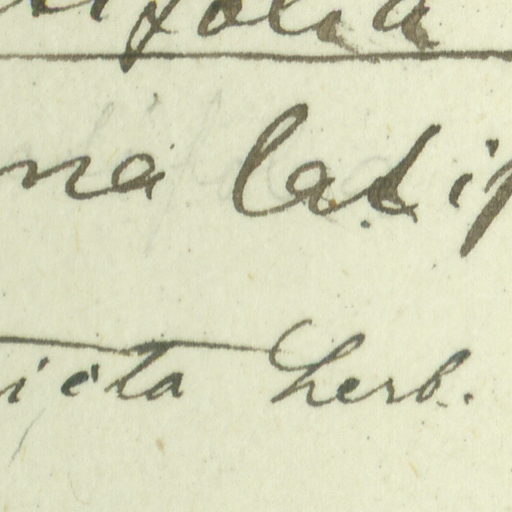 tifolia
na latif
icta Herb.